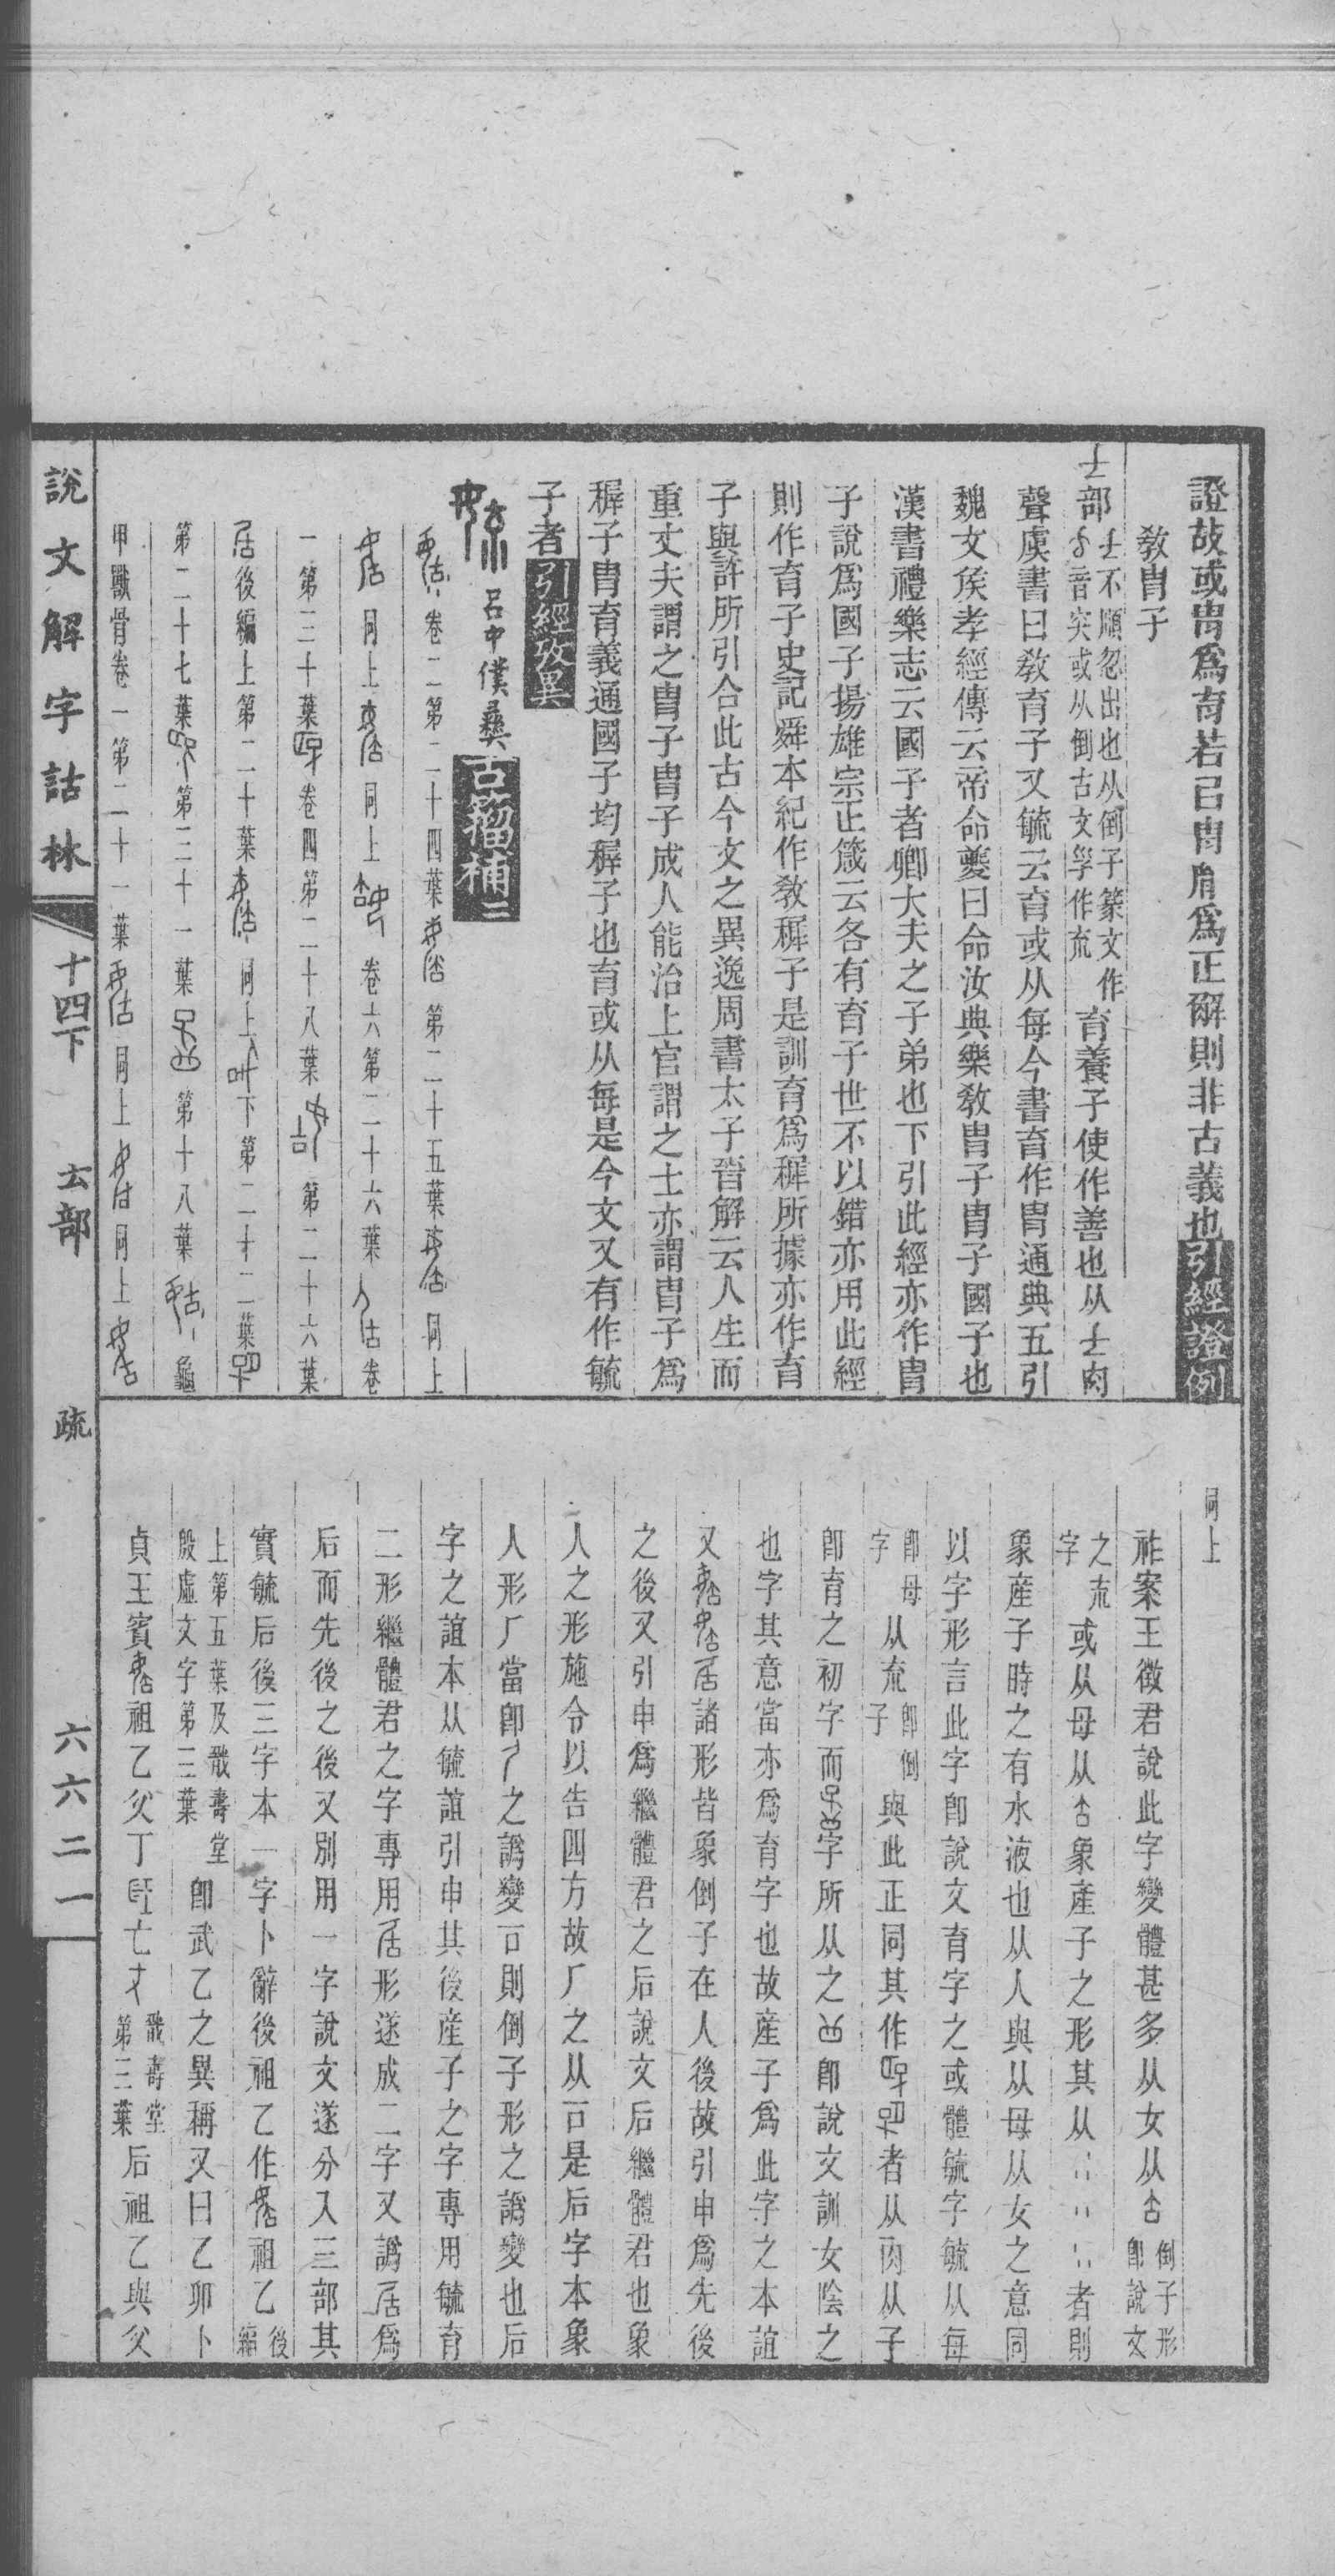 證故或冑爲育若已冑𦙍爲正解則非古義也引經證例
敎冑子
𠫓部𠫓不順忽出也从倒子篆文作
音突或从倒古文㜽作㐬育養子使作善也从𠫓肉
聲虞書曰敎育子又毓云育或从每今書育作冑通典五引
魏文侯孝經傳云帝命夔曰命汝典樂敎冑子冑子國子也
漢書禮樂志云國子者卿大夫之子弟也下引此經亦作冑
子說爲國子揚雄宗正箴云各有育子世不以錯亦用此經
則作育子史記舜本紀作敎穉子是訓育爲穉所據亦作育
子與許所引合此古今文之異逸周書太子晉解云人生而
重丈夫謂之冑子冑子成人能治上官謂之士亦謂冑子爲
穉子冑育義通國子均穉子也育或从每是今文又有作毓
子者引經攷異
呂中僕彝古籀補二
卷二第二十四葉 第二十五葉 同上
同上 同上 卷六第二十六葉 卷
一第三十葉 卷四第二十八葉 第二十六葉
后後編上第二十葉 同上 下第二十二葉
第二十七葉 第三十一葉 第十八葉 龜
甲獸骨卷一第二十一葉 同上 同上
同上
祚案王徵君說此字變體甚多从女从𠫓倒子形
卽說文
之㐬
字或从母从 象產子之形其从 者則
象產子時之有水液也从人與从母从女之意同
以字形言此字卽說文育字之或體毓字毓从每
卽母
字从㐬卽倒
子與此正同其作 者从肉从子
卽育之初字而 字所从之 卽說文訓女陰之
也字其意當亦爲育字也故產子爲此字之本誼
又 諸形皆象倒子在人後故引申爲先後
之後又引申爲繼體君之后說文后繼體君也象
人之形施令以告四方故厂之从一口是后字本象
人形厂當卽 之譌變一口則倒子形之譌變也后
字之誼本从毓誼引申其後產子之字專用毓育
二形繼體君之字專用 形遂成二字又譌 爲
后而先後之後又別用一字說文遂分入三部其
實毓后後三字本一字卜辭後祖乙作 祖乙後
編
上第五葉及戩壽堂
殷虛文字第三葉卽武乙之異稱又曰乙卯卜
貞王賓 祖乙父丁 亡 戩壽堂
第三葉后祖乙與父
說文解字詁林 十四下 𠫓部 疏 六六二一